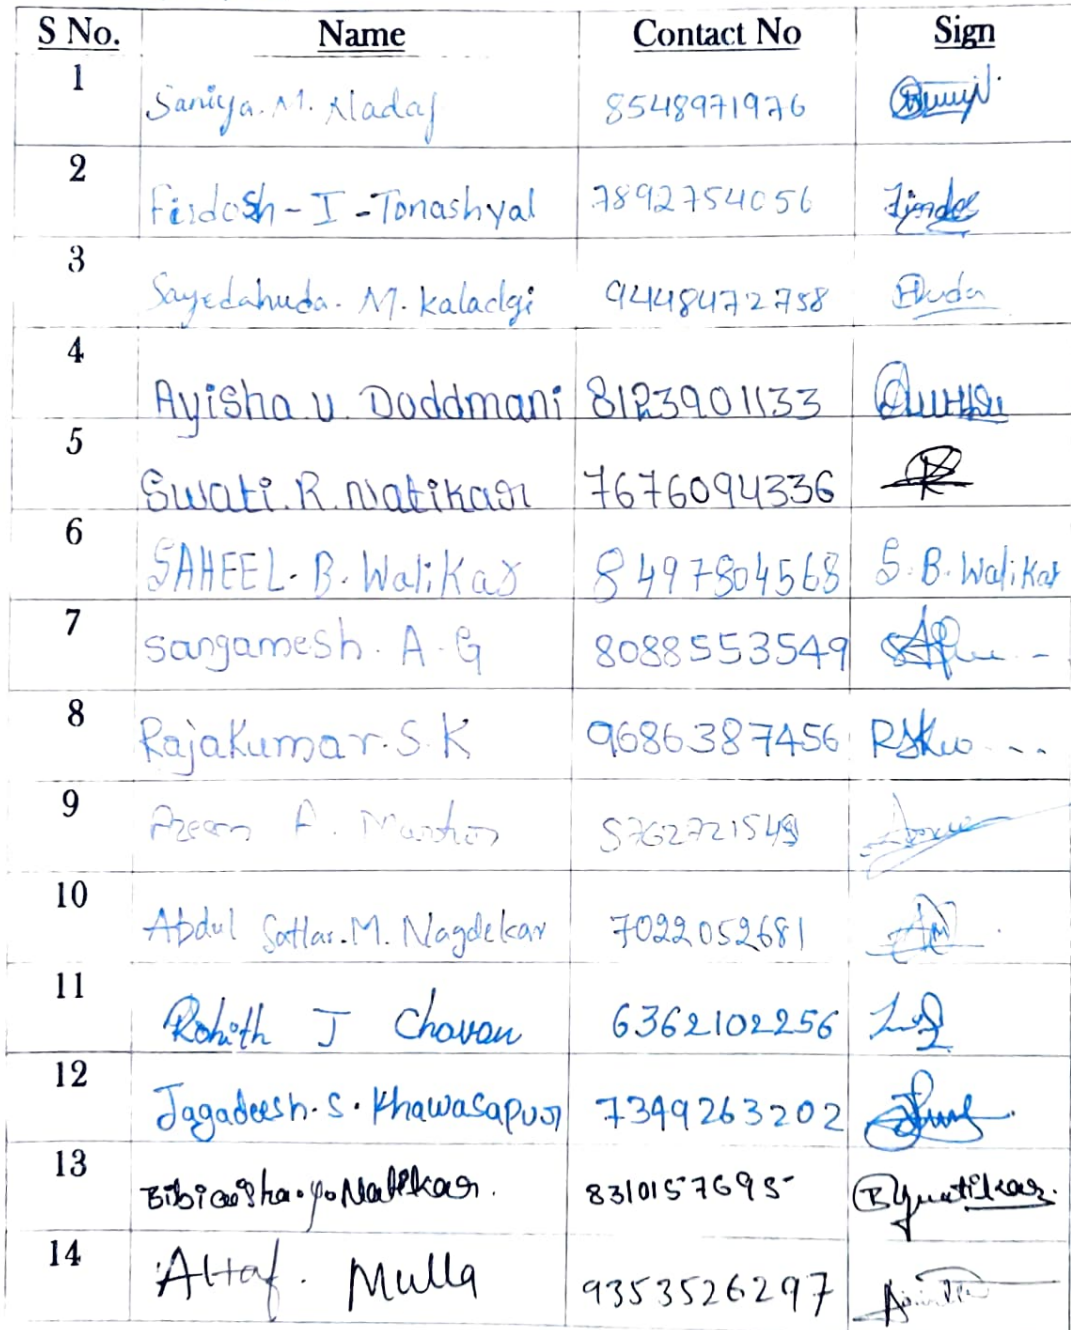 S No. Name Contact No Sign
1 Saniya. M. Nadaf 8548971976
2 Firdosh - I - Tonashyal 7892754056 Firdos
3 Sayedahuda. M. Kaladgi 9448472758 Huda
4 Ayisha U. Doddmani 8123901133
5 Swati. R. Natikar 7676094336
6 SAHEEL. B. Walikar 8497804568 S. B. Walikar
7 Sangamesh. A. G 8088553549
8 Rajakumar. S. K 9686387456
9 Azeem A.
10 Abdul Sattar. M. Nagdekar 7022052681
11 Rohith J Chavan 6362102256
12 Jagadeesh. S. Khawasapur 7349263202
13 Bibiaisha. y. Natikar. 8310157695
14 Altaf. Mulla 9353526297